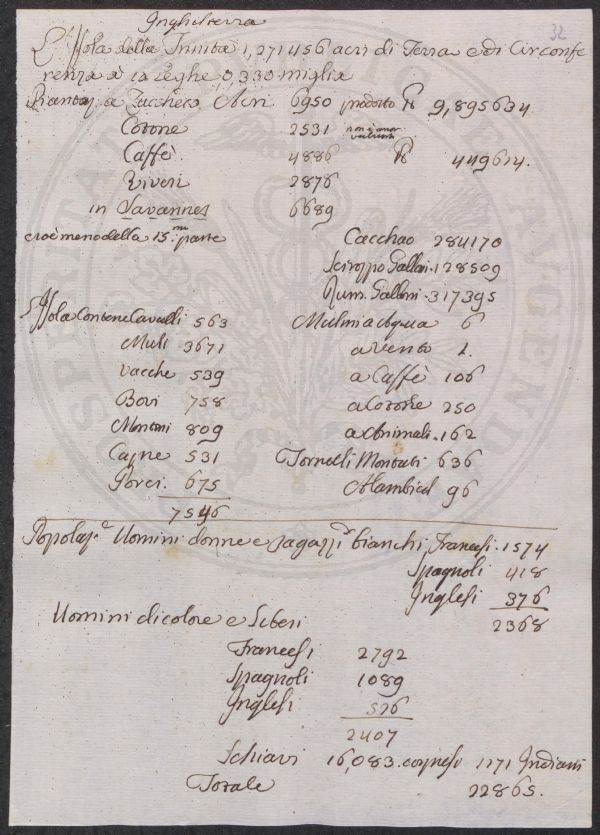 32
Inghilterra
L'Isola della Trinità 1,271456 acri di Terra e di Circonfe
renza à 12 Leghe, o, 330 miglia
Piantaz a Zucchero Acri 6950 prodotto 9,895634
Cotone 2531 non è anor valutato
Caffè 4886 449614.
Viveri 2876
in Savannes 6689
cioè meno della 15.ma parte
Cacchao 284170
Sciroppo Galloni 128509
Rum. Galloni 317395
L'Isola Contiene Cavalli 563
Muli 3671
Vacche 539
Bovi 758
Montoni 809
Capre 531
Porci 675
7546
Mulini a Acqua 6
a vento 1.
a Caffè 106
a Cotone 250
a Animali 162
Tornelli Montati 636
Alambicchi 96
Popolaz.e Uomini donne e ragazzi bianchi Francesi 1574
Spagnoli 418
Inglesi 376
2368
Uomini di colore e Liberi
Francesi 2792
Spagnoli 1089
Inglesi 526
2407
Schiavi 16,083 compresi 1171 Indiani
Totale 22865.
PROSPERITATI PUBLICAE AUGENDAE